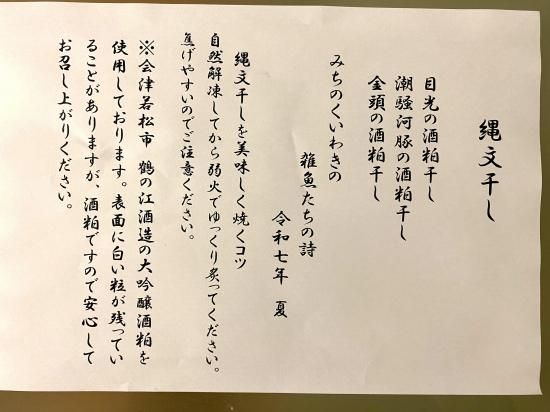 縄文干し
目光の酒粕干し
潮騒河豚の酒粕干し
金頭の酒粕干し
みちのくいわきの
雑魚たちの詩
令和七年　夏
縄文干しを美味しく焼くコツ
自然解凍してから弱火でゆっくり炙ってください。
焦げやすいのでご注意ください。
※会津若松市　鶴の江酒造の大吟醸酒粕を
使用しております。表面に白い粒が残ってい
ることがありますが、酒粕ですので安心して
お召し上がりください。